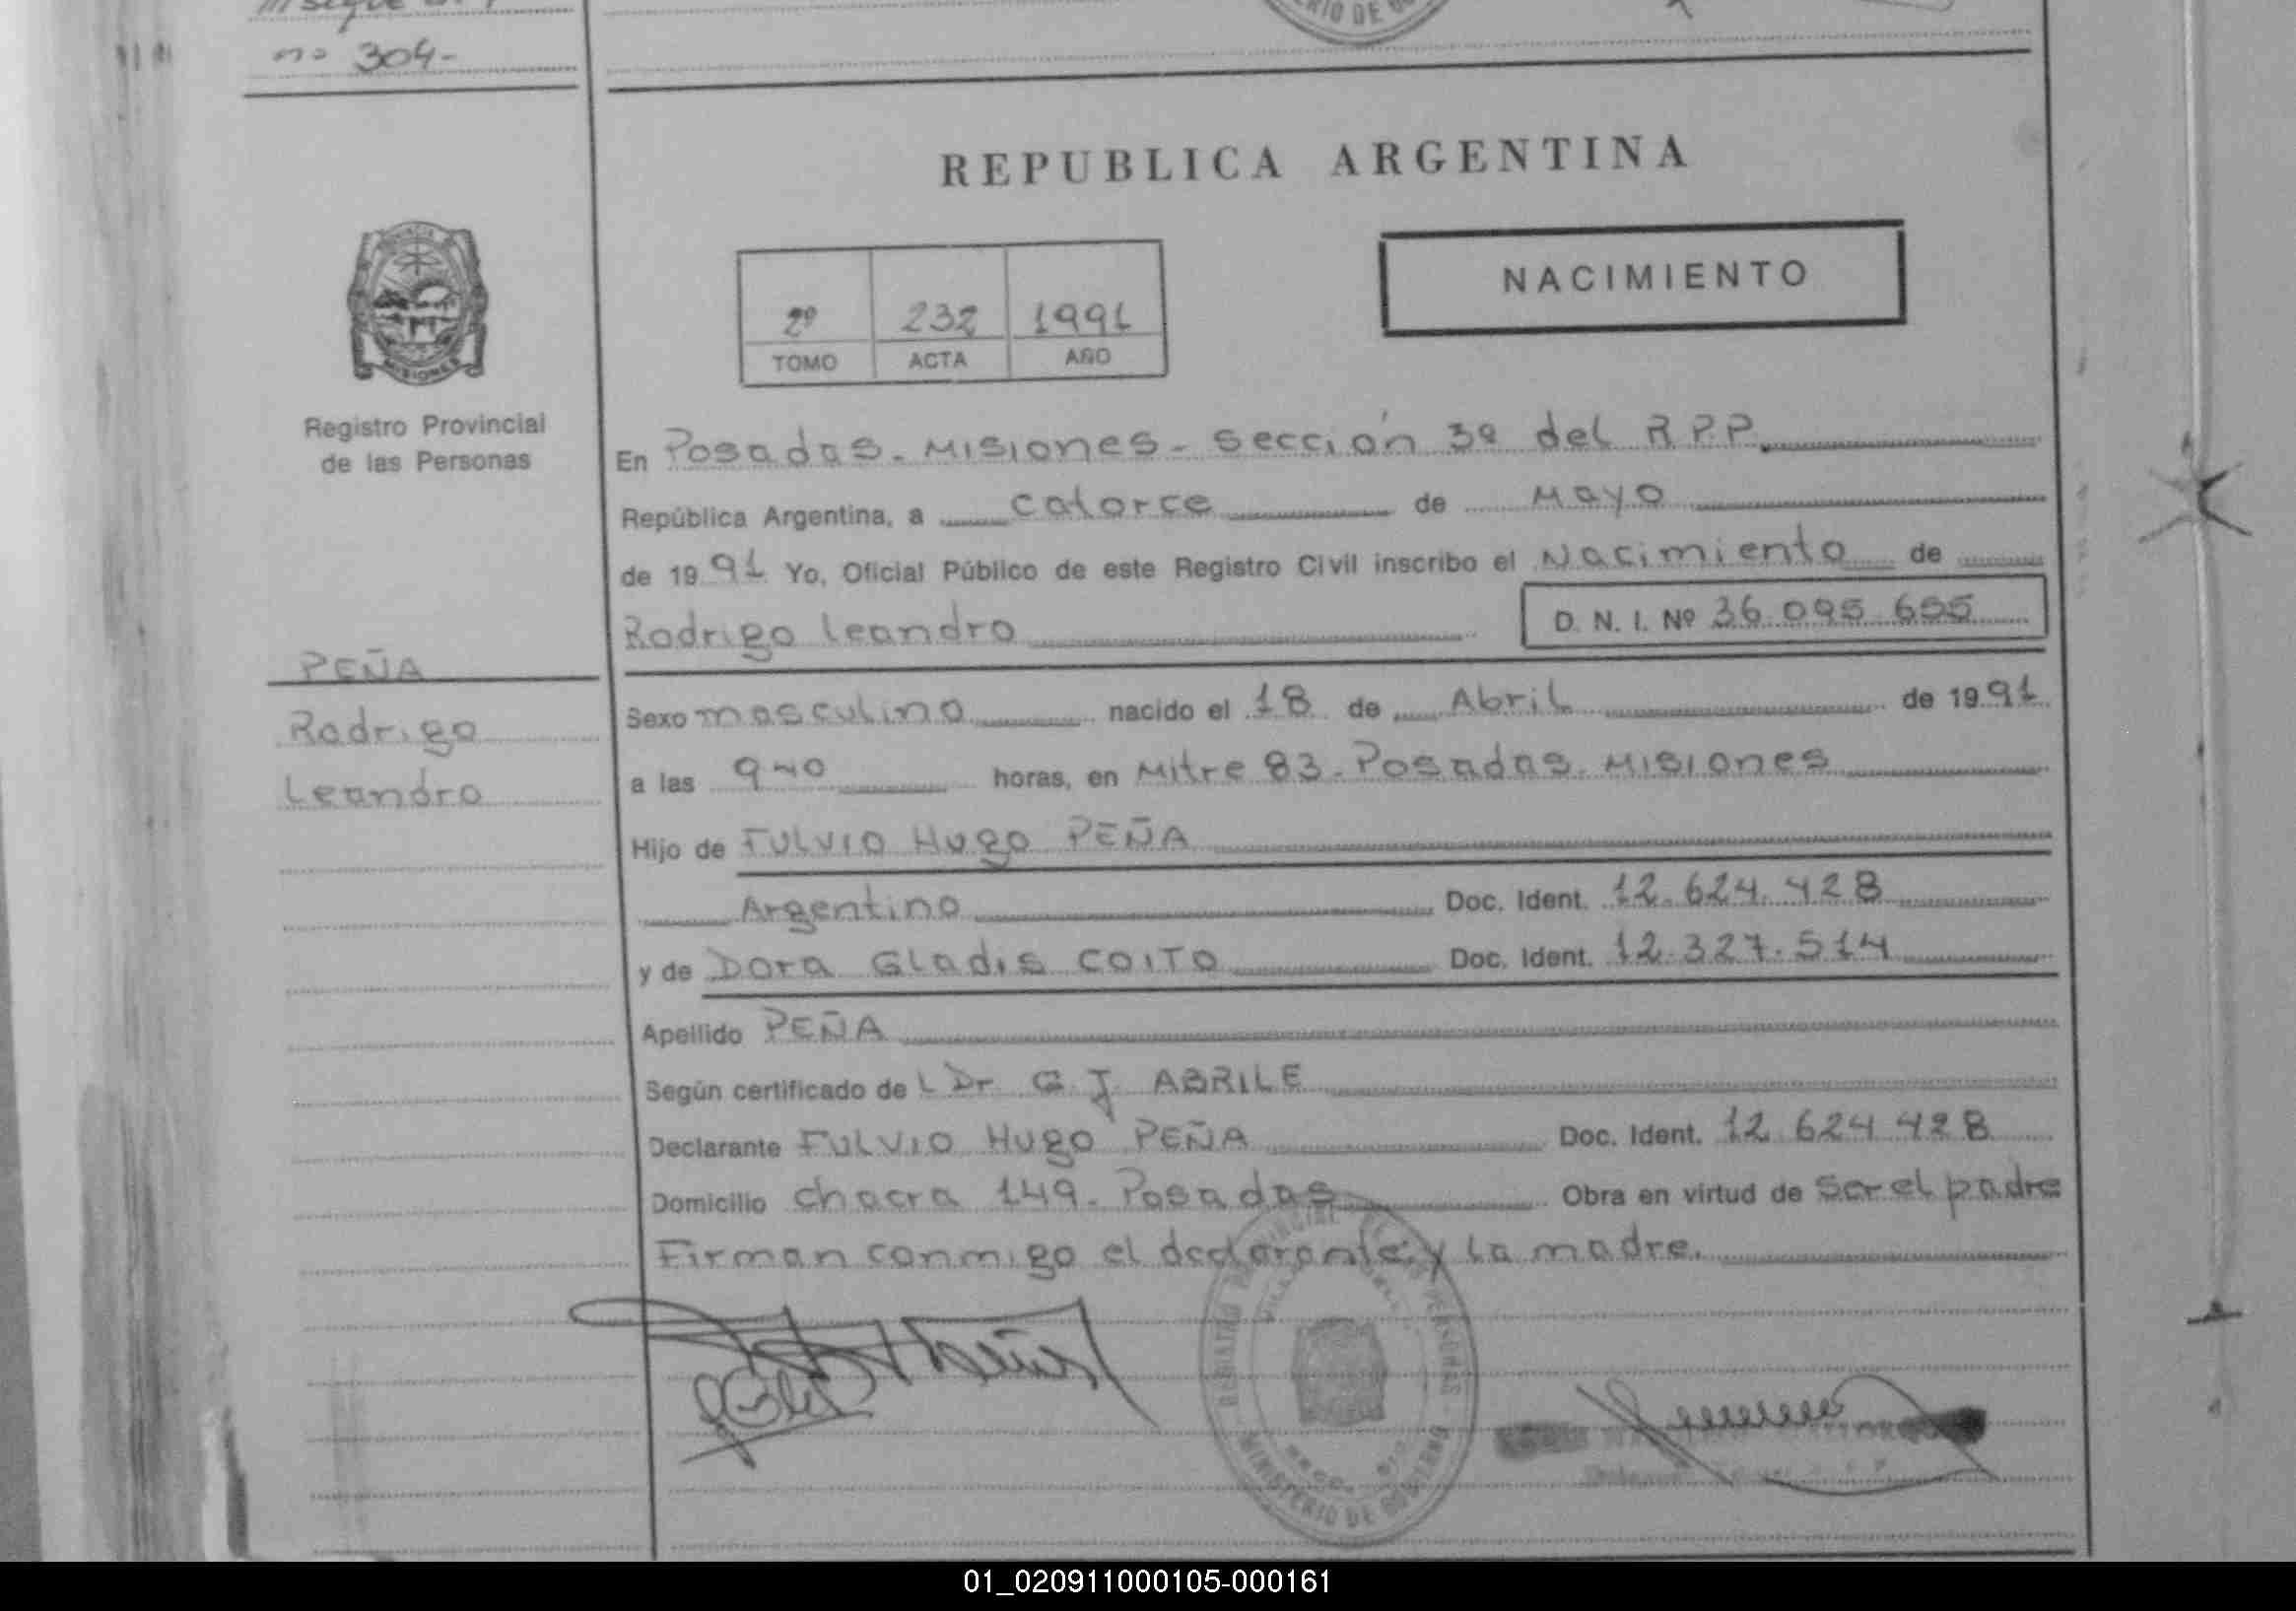 no 304-
REPUBLICA ARGENTINA
NACIMIENTO
2º 232 1991
TOMO ACTA AÑO
MISIONES
Registro Provincial
de las Personas
En Posadas - Misiones - Sección 3ª del R P P.
República Argentina, a catorce de Mayo
de 1991 Yo, Oficial Público de este Registro Civil inscribo el Nacimiento de
Rodrigo Leandro D. N. I. Nº 36.095.655
PEÑA
Rodrigo
Leandro
Sexo masculino nacido el 18 de Abril de 1991
a las 9-40 horas, en Mitre 83 - Posadas. Misiones
Hijo de FULVIO HUgo PEÑA
Argentino Doc. Ident. 12.624.428
y de DORA GLADIS COITO Doc. Ident. 12.327.514
Apellido PEÑA
Según certificado del Dr G J ABRILE
Declarante FULVIO HUgo PEÑA Doc. Ident. 12 624 428
Domicilio chacra 149 - Posadas Obra en virtud de Ser el padre
Firman conmigo el declarante y la madre.
MINISTERIO DE GOBIERNO
01_020911000105-000161